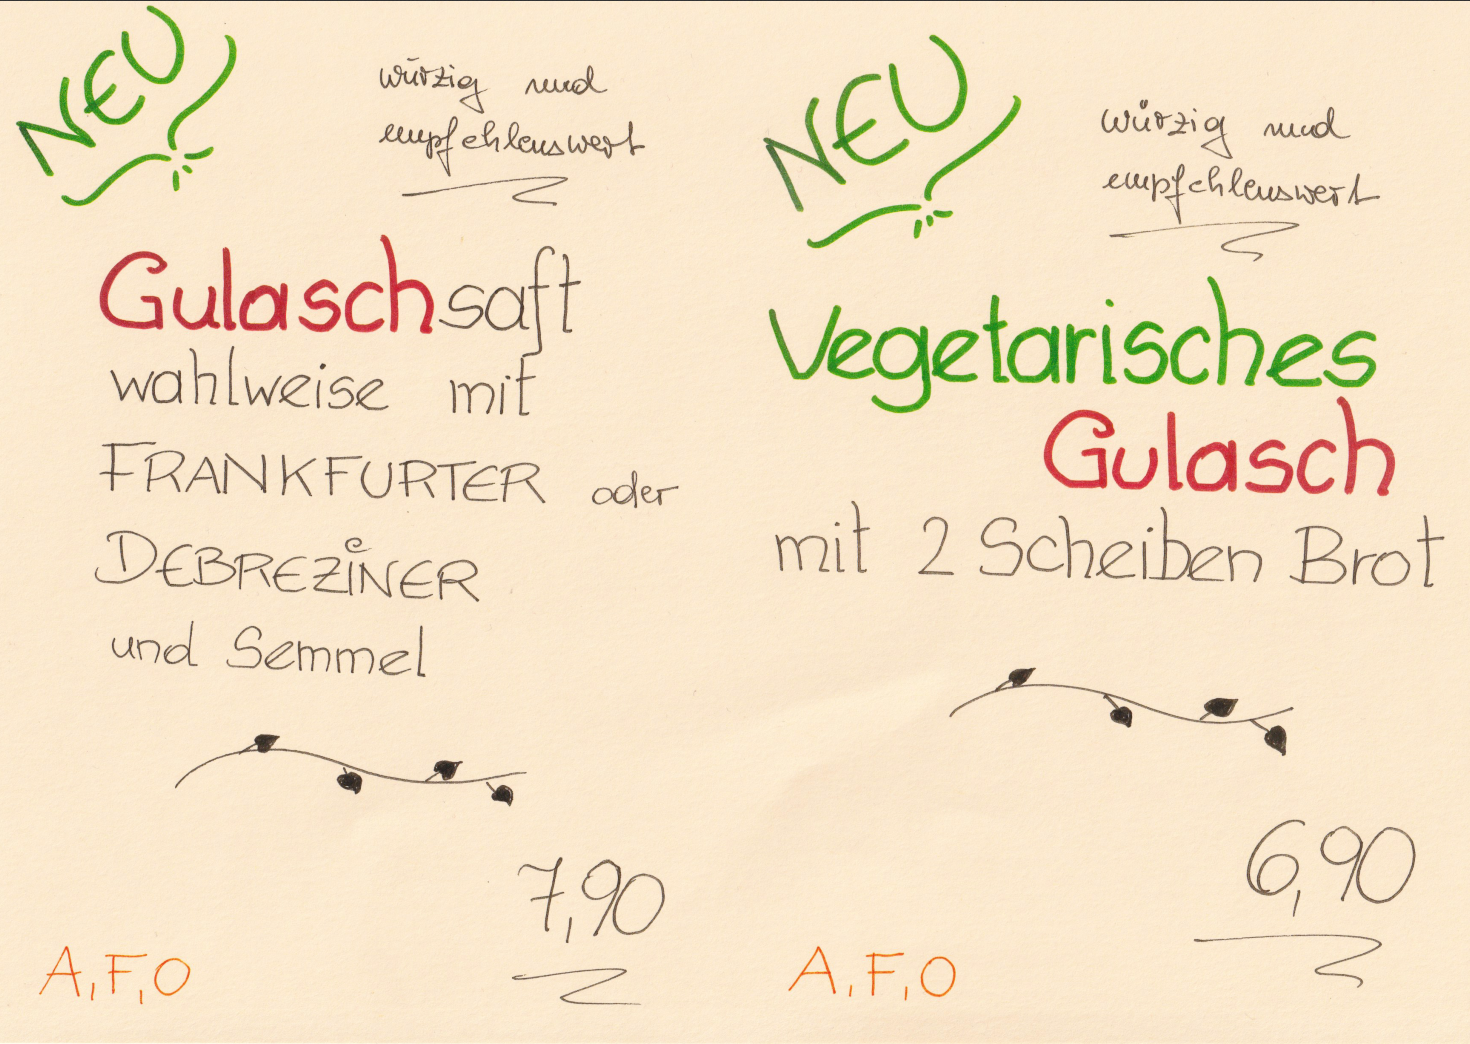 NEU
würzig und
empfehlenswert
Gulaschsaft
wahlweise mit
FRANKFURTER oder
DEBREZINER
und Semmel
7,90
A,F,O
NEU
würzig und
empfehlenswert
Vegetarisches
Gulasch
mit 2 Scheiben Brot
6,90
A,F,O